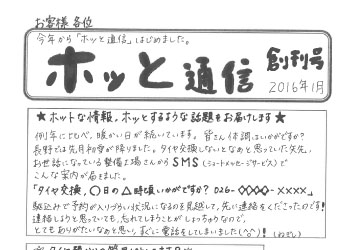 お客様各位
今年から「ホッと通信」はじめました。
ホッと通信
創刊号
2016年1月
★ホットな情報、ホッとするような話題をお届けします★
例年にくらべ、暖かい日が続いています。皆さん体調はいかがですか?
長野では先月初雪が降りました。タイヤ交換しないとなぁと思っていた矢先、
お世話になっている整備工場さんからSMS(ショートメッセージサービス)で
こんな案内が届きました。
「タイヤ交換、〇日の△時頃いかがですか? 026-◇◇◇◇-××××」
駆込みで予約が入りづらい状況になるのを見越して、先に連絡をくださったのです!
連絡しようと思っていても、忘れてしまうことがしょっちゅうなので、
とてもありがたいなぁと思い、すぐに電話をしてしまいました(^^)!